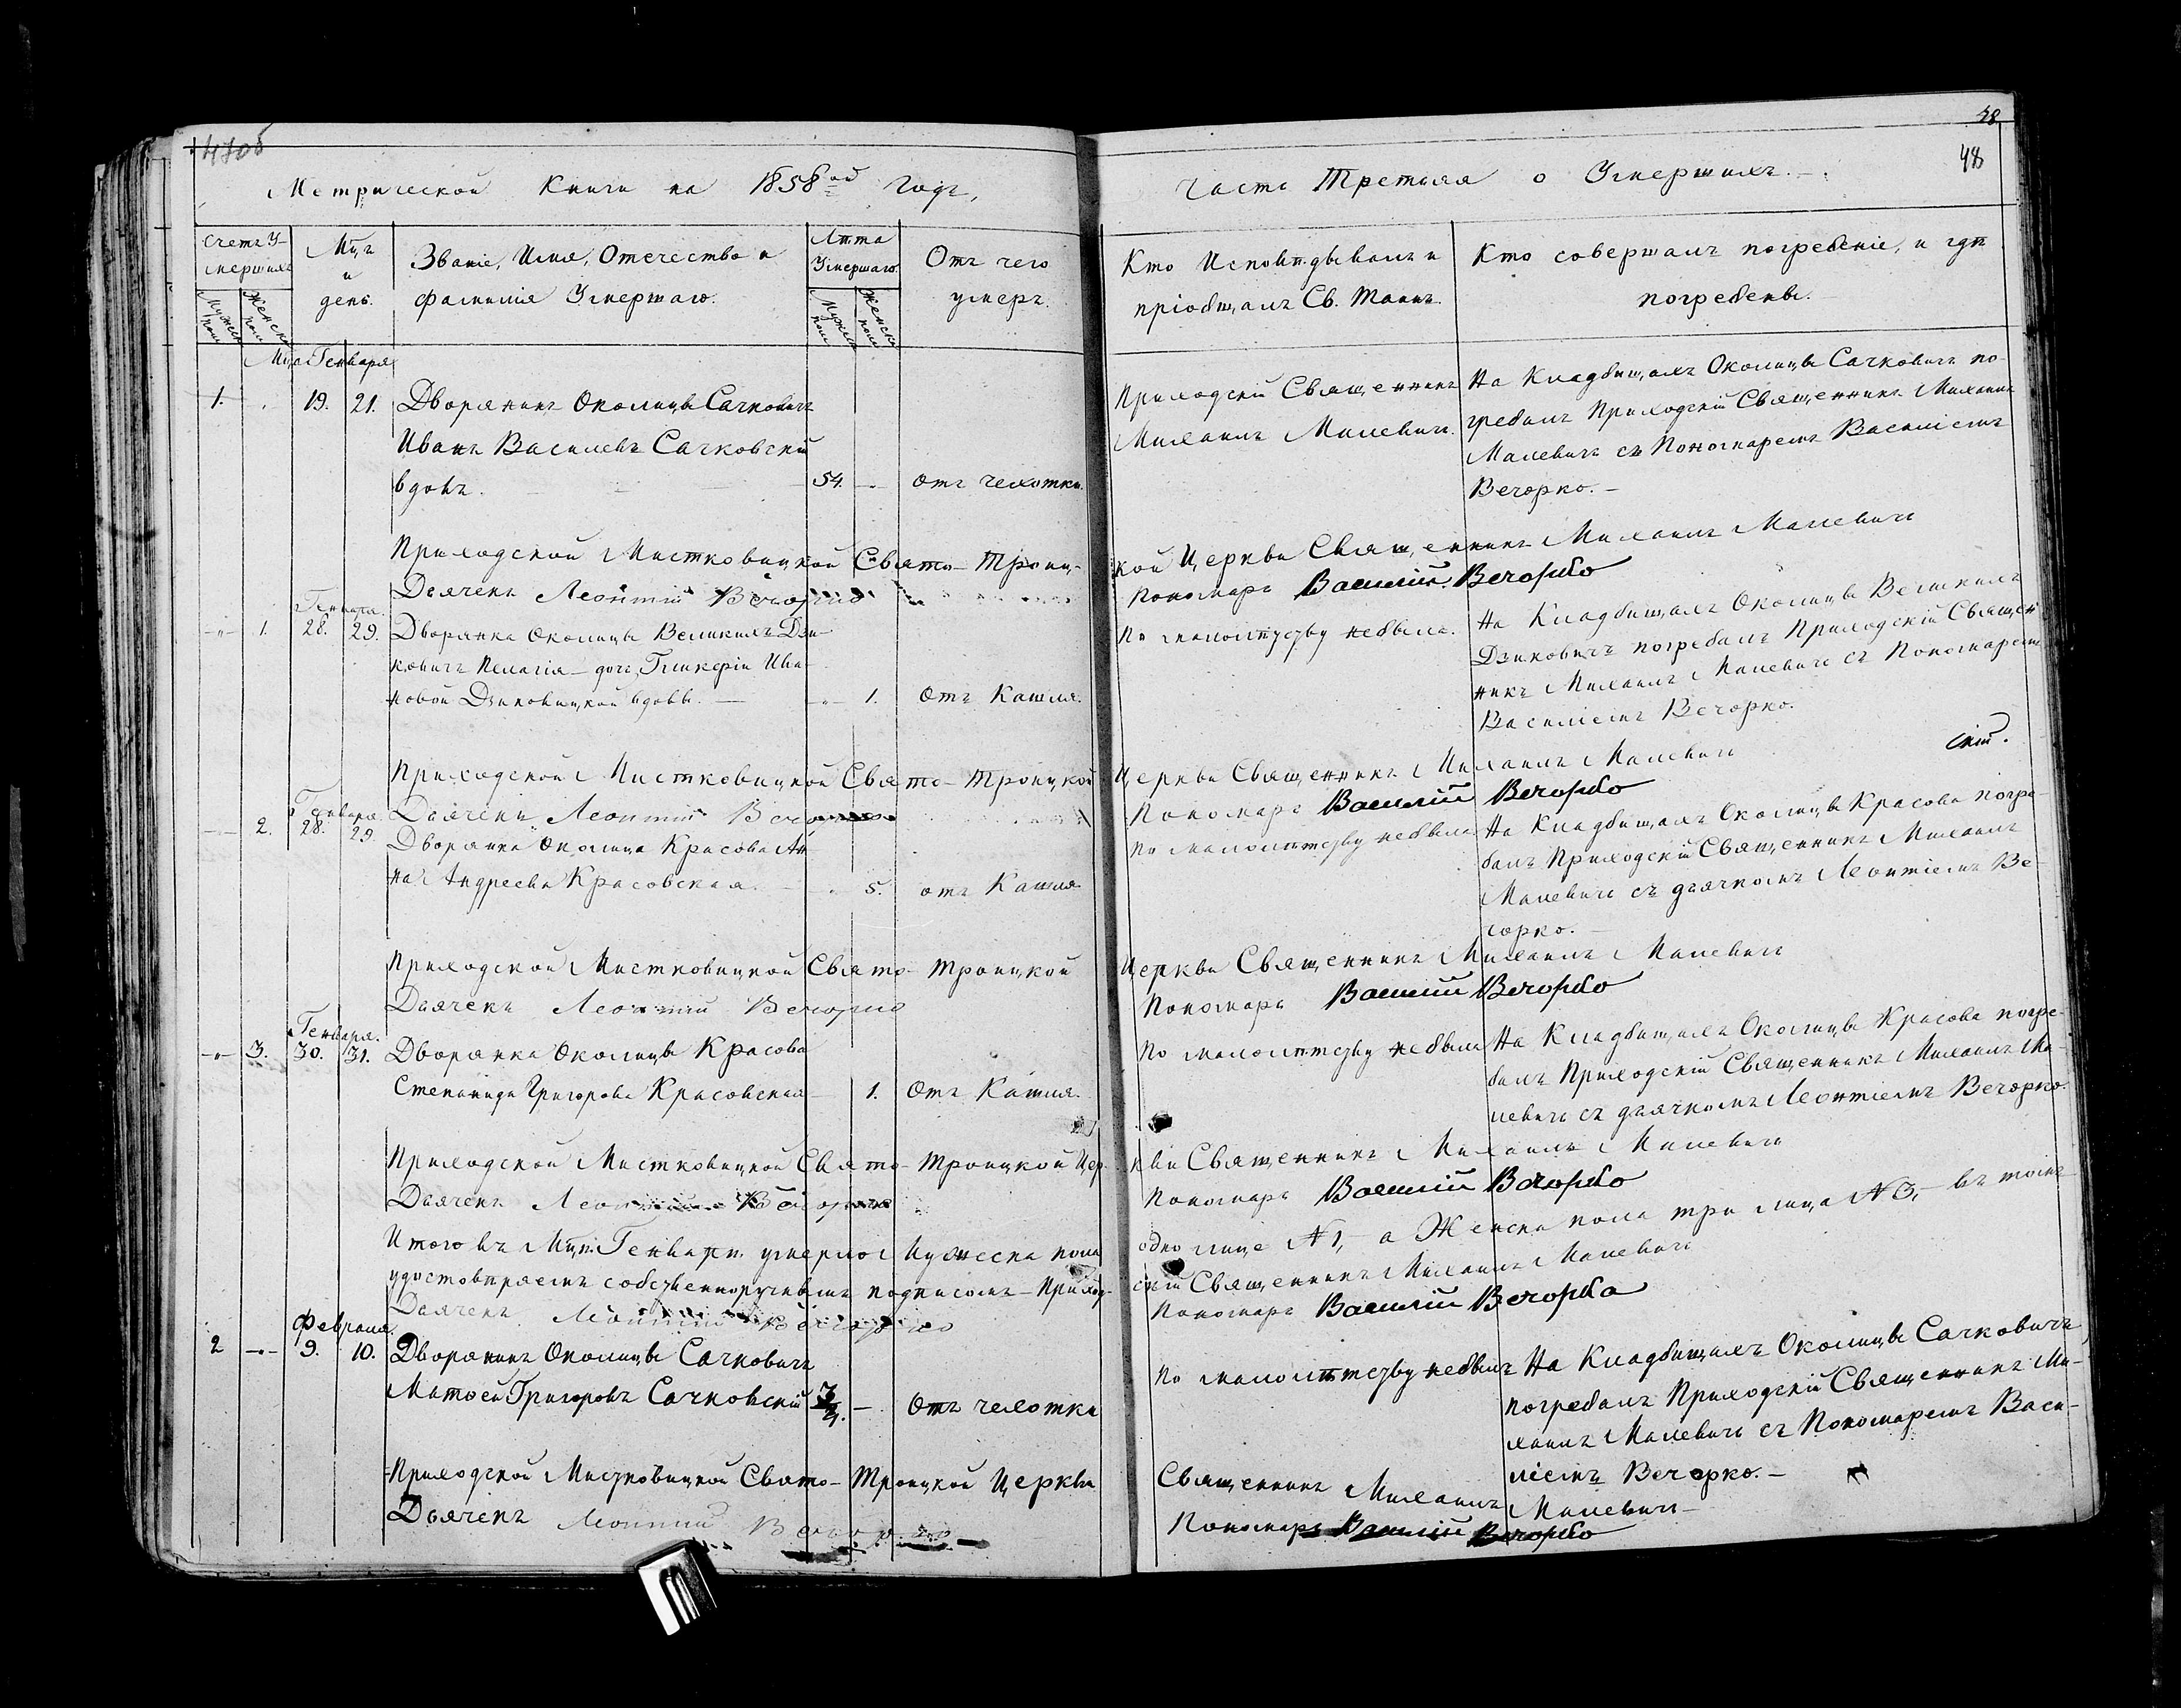 48
48
Метрической Книги на 1858ой годъ,
часть Третья о Умершихъ.
Счетъ У-
мершихъ
Мужеск. пол.
Женска пол.
Мцъ
и
день.
Званіе, Имя, Отечество и
фамилія Умершаго.
Лѣта
Умершаго.
Мужеск. пол.
Женска пол.
Отъ чего
умеръ.
Кто Исповѣдывалъ и
пріобщалъ Св. Таинъ.
Кто совершалъ погребеніе, и гдѣ
погребены.
Мца Генваря
1. 19. 21. Дворянинъ Околицы Сачковичъ
Иванъ Василевъ Сачковскій
вдовъ. 54. отъ чехотки.
Приходскій Священникъ
Михаилъ Малевичъ.
На Кладбищахъ Околицы Сачковичъ по-
гребалъ Приходскій Священникъ Михаилъ
Малевичъ съ Пономаремъ Василіемъ
Вечорко.
Приходской Мистковицкой Свято-Троиц-
кой Церкви Священникъ Михаилъ Малевичъ
Дьячекъ Леонтій Вечорко
Пономарь Василій Вечорко
Генваря.
1. 28. 29. Дворянка Околицы Великихъ Дзи-
ковичъ Пелагія дочь Гликеріи Ива-
новой Дзиковицкой вдовы. 1. Отъ Кашля.
По малолѣтству небыла.
На Кладбищахъ Околицы Великихъ
Дзиковичъ погребалъ Приходскій Священ-
никъ Михаилъ Малевичъ съ Пономаремъ
Василіемъ Вечорко.
Приходской Мистковицкой Свято-Троицкой
Церкви Священникъ Михаилъ Малевичъ
Дьячекъ Леонтій
Пономарь Василій Вечорко
Генваря.
2. 28. 29. Дворянка Околица Красова Ан-
на Андреева Красовская. 5. отъ Кашля
По малолѣтству небыла
На Кладбищахъ Околицы Красова погре-
балъ Приходскій Священникъ Михаилъ
Малевичъ съ дьячкомъ Леонтіемъ Ве-
чорко.
Приходской Мистковицкой Свято-Троицкой
Церкви Священникъ Михаилъ Малевичъ
Дьячекъ Леонтій Вечорко
Пономарь Василій Вечорко
Генваря.
3. 30. 31. Дворянка Околицы Красова
Степанида Григорова Красовская 1. Отъ Кашля.
По малолѣтству небыла
На Кладбищахъ Околицы Красова погре-
балъ Приходскій Священникъ Михаилъ Ма-
левичъ съ дьячкомъ Леонтіемъ Вечорко.
Приходской Мистковицкой Свято-Троицкой Цер-
кви Священникъ Михаилъ Малевичъ
Дьячекъ Леонтій Вечорко
Пономарь Василій Вечорко
Итого въ Мцѣ Генварѣ умерло Мужеска пола
одно лице №1, а Женска пола три лица №3, въ томъ
удостовѣряемъ собственноручнымъ подписомъ Приход-
скій Священникъ Михаилъ Малевичъ
Дьячекъ Леонтій Вечорко
Пономарь Василій Вечорко
Февраля
2 9. 10. Дворянинъ Околицы Сачковичъ
Матфей Григоровъ Сачковскій Отъ чехотки
По малолѣтству небылъ
На Кладбищахъ Околицы Сачковичъ
погребалъ Приходскій Священникъ Ми-
хаилъ Малевичъ съ Пономаремъ Васи-
ліемъ Вечорко.
Приходской Мистковицкой Свято-Троицкой Церкви
Священникъ Михаилъ Малевичъ
Дьячекъ Леонтій Вечорко
Пономарь Василій Вечорко